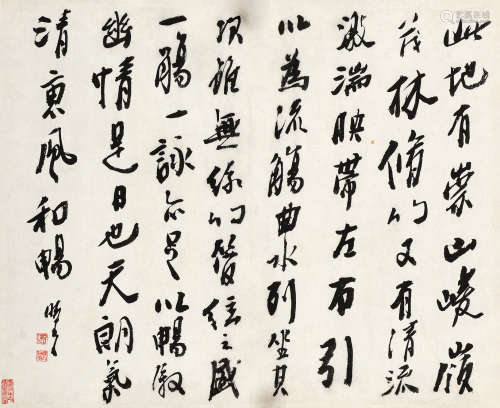 此地有崇山峻嶺
茂林脩竹又有清流
激湍映帶左右引
以為流觴曲水列坐其
次雖無絲竹管絃之盛
一觴一詠亦足以暢敘
幽情是日也天朗氣
清惠風和暢